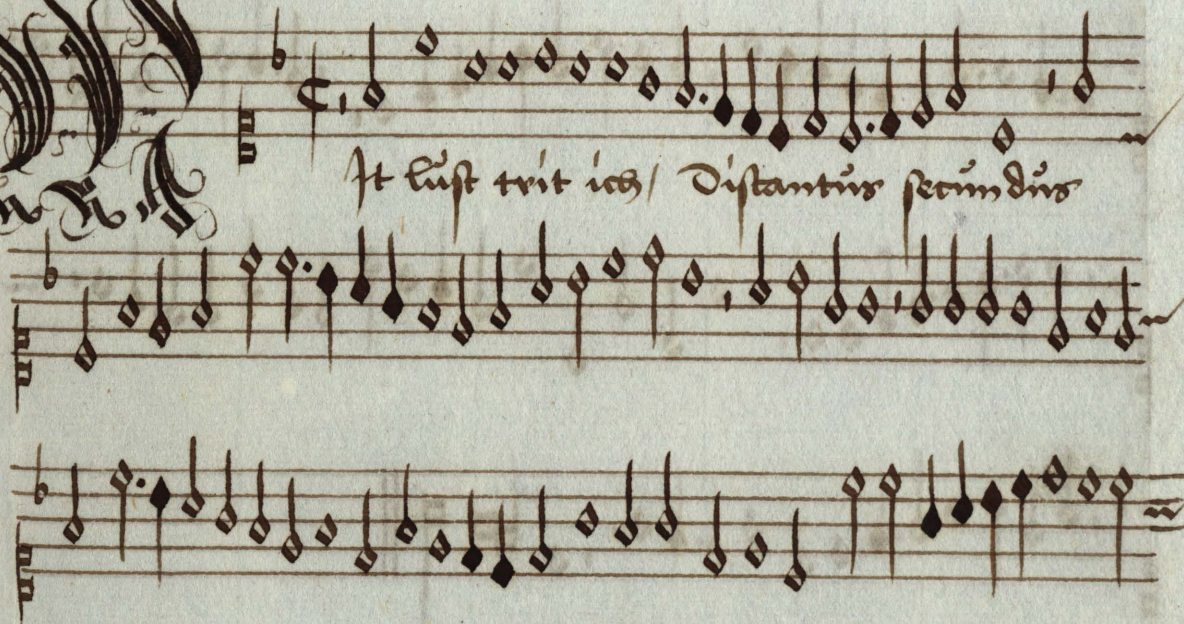 It lust trit ich / Distantus secundus